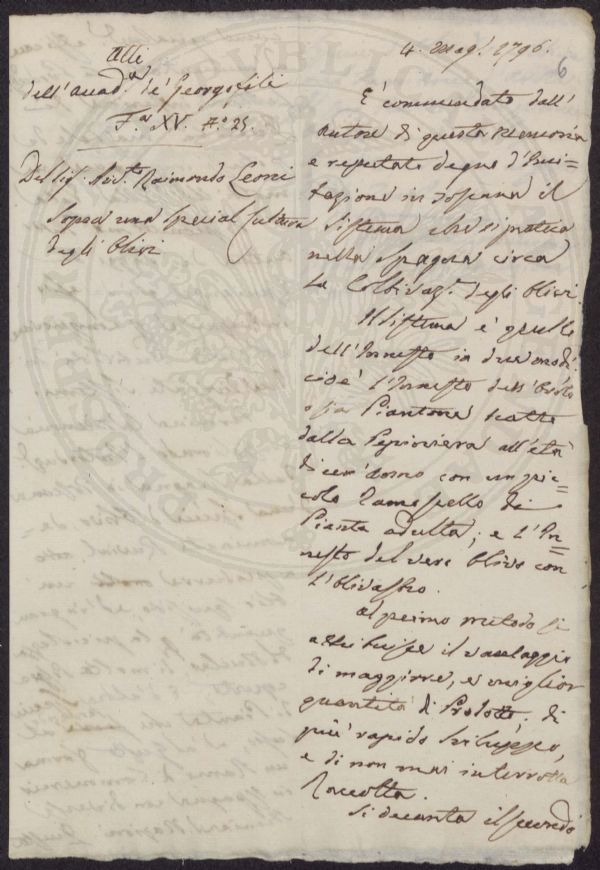 Atti
dell'Accad.a de' Georgofili
T. XV. N.o 25.
Del Sig. Avv.to Raimondo Leoni
Sopra una special cultura
degli Olivi
4. Mag. 1796.
6
È commendato dall'
Autore di questa Memoria
e reputato degno d'Imi=
tazione in Toscana il
Sistema che si pratica
nella Spagna circa
la Coltivaz.e degli Olivi.
Il Sistema è quello
dell'Innesto in due modi:
cioè l'Innesto dell'
o sia Piantone tratto
dalla all'età
di un' con un pic=
colo Ramoscello di
Pianta adulta; e l'In=
nesto del vero Olivo con
l'Olivastro.
Al primo metodo si
attribuisce il vantaggio
di maggiore, e miglior
quantità di Prodotto, di
più rapido sviluppo,
e di non mai interrotta
Raccolta.
Si decanta il secondo